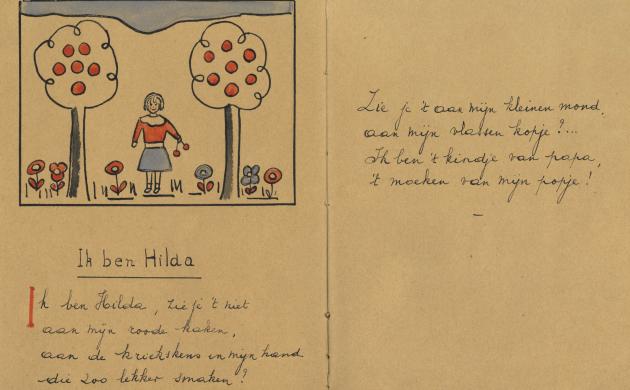 Ik ben Hilda
Ik ben Hilda, zie je 't niet
aan mijn roode kaken,
aan de kriekskens in mijn hand
die zoo lekker smaken?
Zie je 't aan mijn kleinen mond,
aan mijn vlassen kopje?...
Ik ben 't kindje van papa,
't moeken van mijn popje!